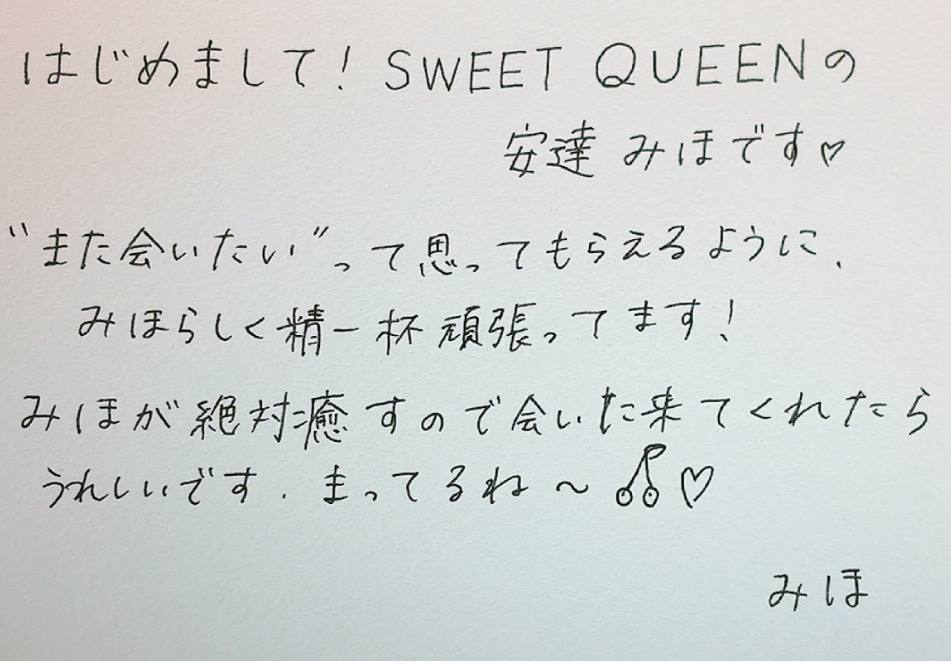 はじめまして！SWEET QUEENの
安達 みほです♡
"また会いたい"って思ってもらえるように、
みほらしく精一杯頑張ってます！
みほが絶対癒すので会いた来てくれたら
うれしいです．まってるね～♡
みほ